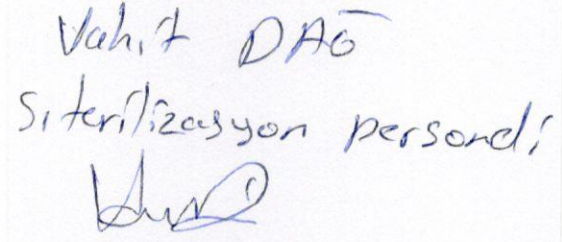 Vahit DAĞ
Siterilizasyon personeli